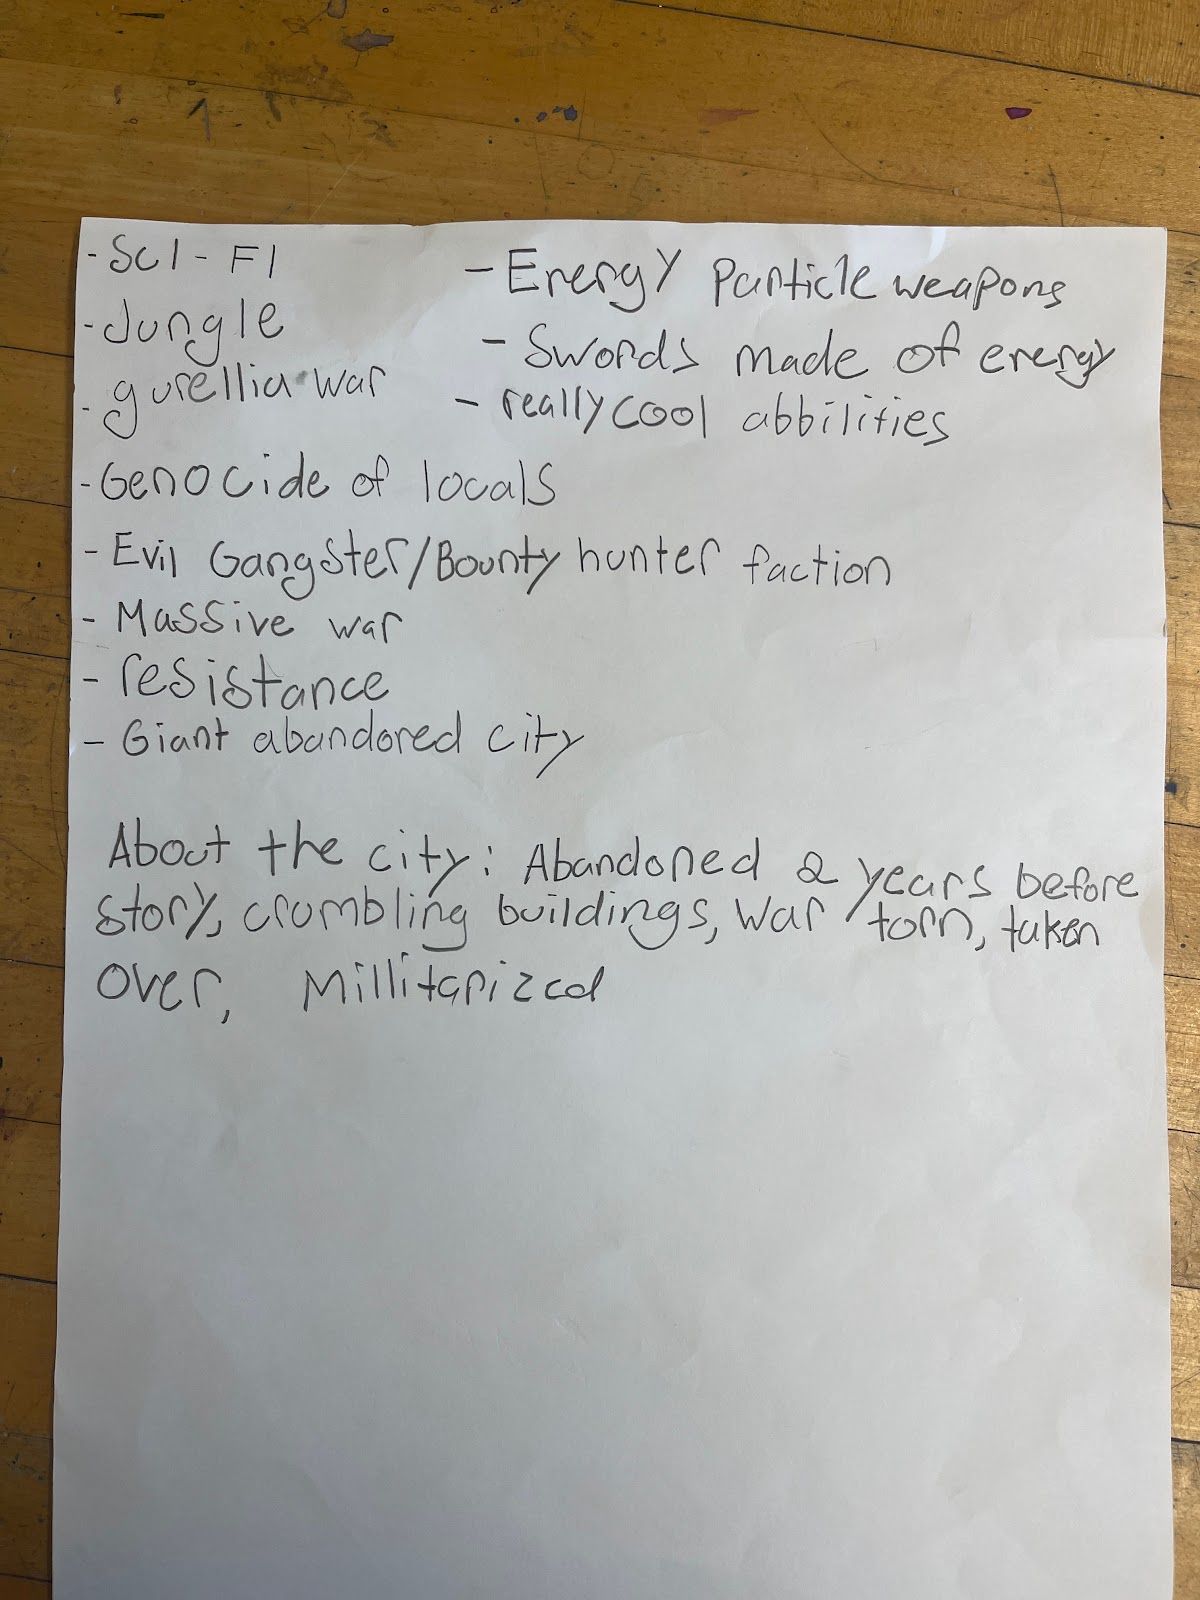 - Sci-Fi
- Jungle
- gurellia war
- Genocide of locals
- Evil Gangster/Bounty hunter faction
- Massive war
- resistance
- Giant abandored city
- Energy Particle weapons
- Swords made of energy
- really cool abbilities
About the city: Abandoned 2 years before
story, crumbling buildings, war torn, taken
over, Millitarized